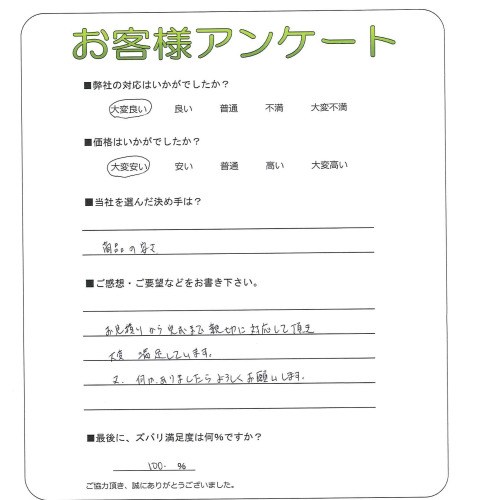 お客様アンケート
■弊社の対応はいかがでしたか？
大変良い 良い 普通 不満 大変不満
■価格はいかがでしたか？
大変安い 安い 普通 高い 大変高い
■当社を選んだ決め手は？
商品の安さ
■ご感想・ご要望などをお書き下さい。
お見積りから 親切に対応して頂き
大変 満足しています。
又、何かありましたらよろしくお願いします。
■最後に、ズバリ満足度は何％ですか？
100. ％
ご協力頂き、誠にありがとうございました。